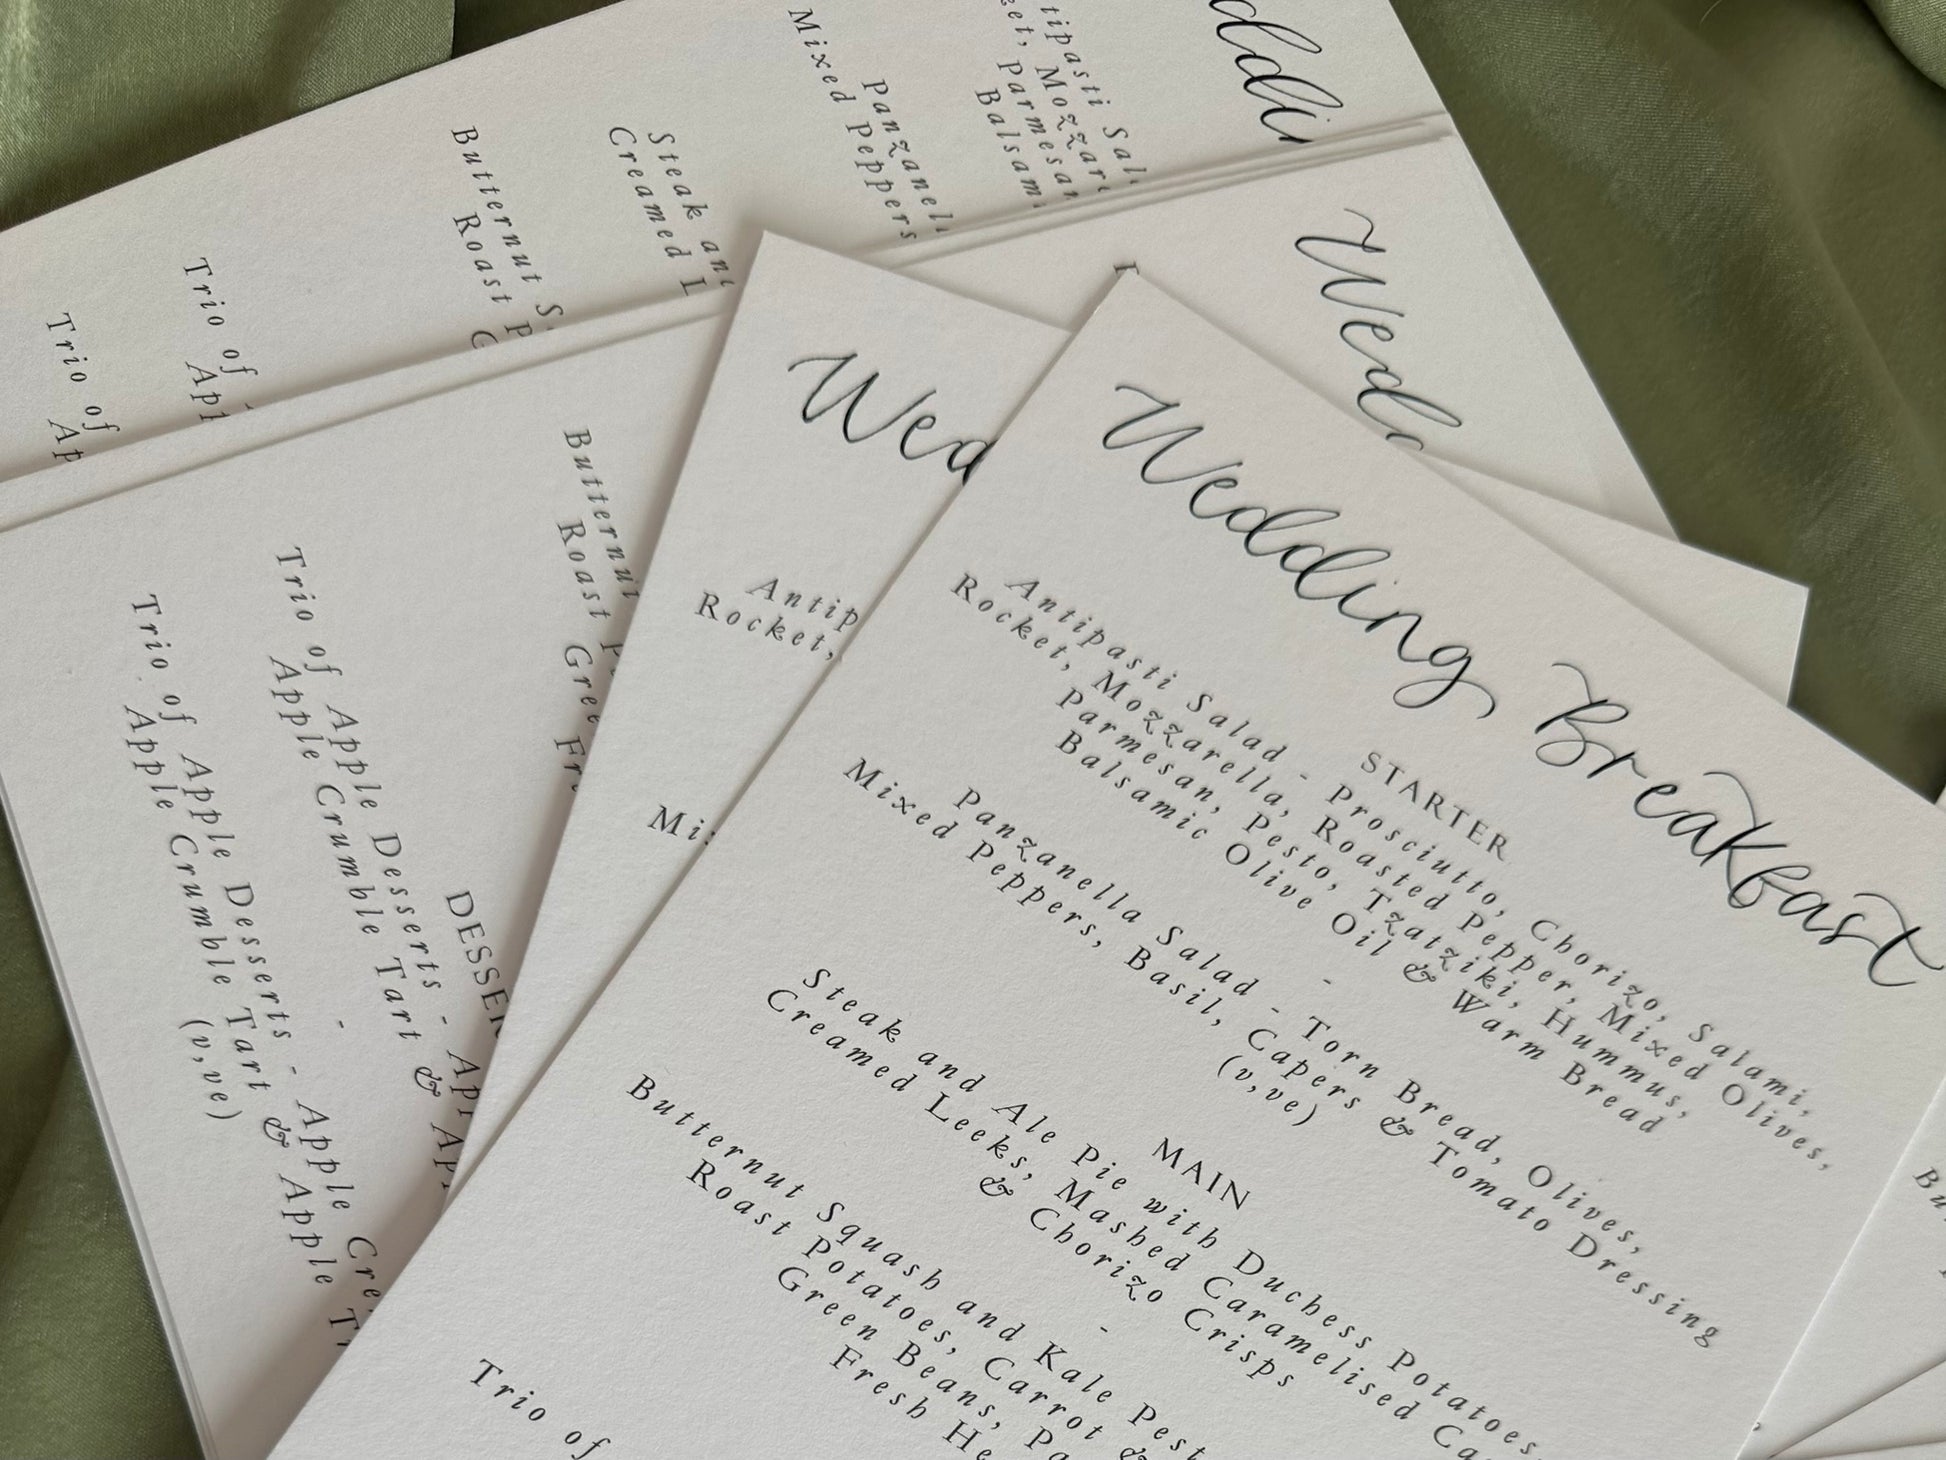 Wedding Breakfast
STARTER
Antipasti Salad - Prosciutto, Chorizo, Salami,
Rocket, Mozzarella, Roasted Pepper, Mixed Olives,
Parmesan, Pesto, Tzatziki, Hummus,
Balsamic Olive Oil & Warm Bread
-
Panzanella Salad - Torn Bread, Olives,
Mixed Peppers, Basil, Capers & Tomato Dressing
(v,ve)
MAIN
Steak and Ale Pie with Duchess Potatoes
Creamed Leeks, Mashed Caramelised
& Chorizo Crisps
-
Butternut Squash and Kale
Roast Potatoes, Carrot &
Green Beans,
Fresh
Trio of
Antip
Rocket,
DESSER
Trio of Apple Desserts -
Apple Crumble Tart &
-
Trio of Apple Desserts - Apple
Apple Crumble Tart & Apple
(v,ve)
Butternut
Roast
Steak
Creamed
Butternut
Roast
Mixed Peppers
Trio of
Trio of